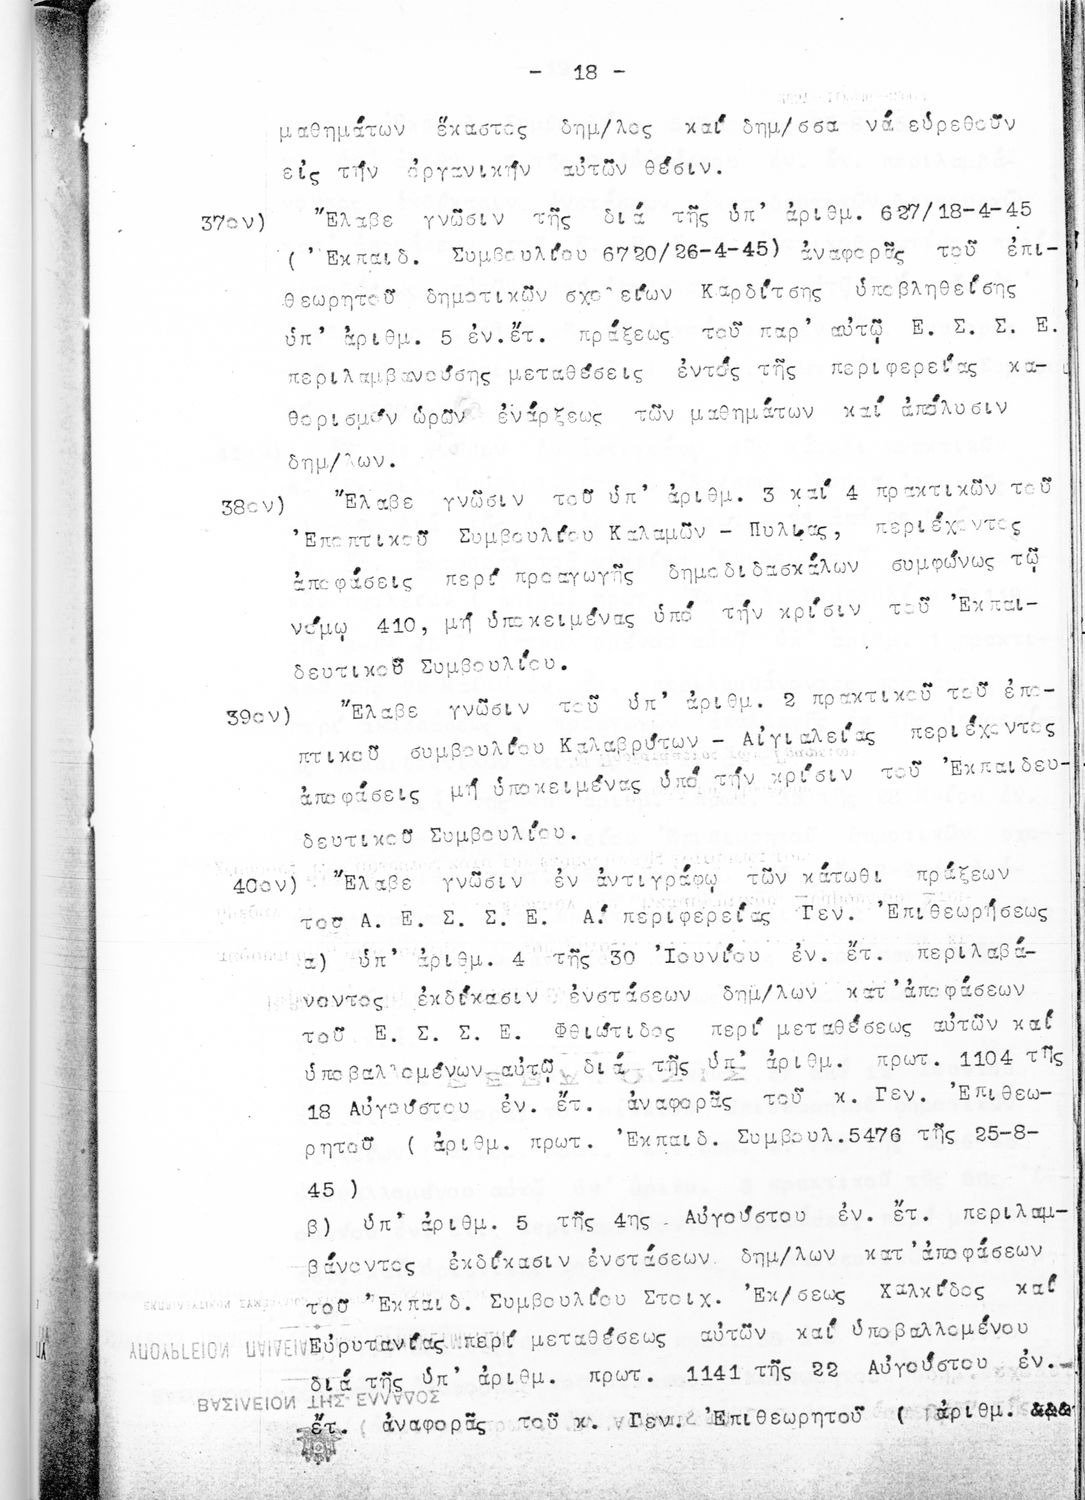 - 18 -
μαθημάτων ἕκαστος δημ/λος καί δημ/σσα νά εὑρεθοῦν
εἰς τήν ὀργανικήν αὐτῶν θέσιν.
37ον) Ἔλαβε γνῶσιν τῆς διά τῆς ὑπ' ἀριθμ. 627/18-4-45
( 'Εκπαιδ. Συμβουλίου 6720/26-4-45) ἀναφορᾶς τοῦ ἐπι-
θεωρητοῦ δημοτικῶν σχολείων Καρδίτσης ὑποβληθείσης
ὑπ' ἀριθμ. 5 ἐν.ἔτ. πράξεως τοῦ παρ' αὐτῷ Ε. Σ. Σ. Ε.
περιλαμβανούσης μεταθέσεις ἐντός τῆς περιφερείας κα-
θορισμόν ὡρῶν ἐνάρξεως τῶν μαθημάτων καί ἀπόλυσιν
δημ/λων.
38ον) Ἔλαβε γνῶσιν τοῦ ὑπ' ἀριθμ. 3 καί 4 πρακτικῶν τοῦ
'Εποπτικοῦ Συμβουλίου Καλαμῶν - Πυλίας, περιέχοντος
ἀποφάσεις περί προαγωγῆς δημοδιδασκάλων συμφώνως τῷ
νόμῳ 410, μή ὑποκειμένας ὑπό τήν κρίσιν τοῦ 'Εκπαι-
δευτικοῦ Συμβουλίου.
39ον) Ἔλαβε γνῶσιν τοῦ ὑπ' ἀριθμ. 2 πρακτικοῦ τοῦ ἐπο-
πτικοῦ συμβουλίου Καλαβρύτων - Αἰγιαλείας περιέχοντος
ἀποφάσεις μή ὑποκειμένας ὑπό τήν κρίσιν τοῦ 'Εκπαιδευ-
δευτικοῦ Συμβουλίου.
40ον) Ἔλαβε γνῶσιν ἐν ἀντιγράφῳ τῶν κάτωθι πράξεων
του Α. Ε. Σ. Σ. Ε. Α΄ περιφερείας Γεν. 'Επιθεωρήσεως
α) ὑπ' ἀριθμ. 4 τῆς 30 'Ιουνίου ἐν. ἔτ. περιλαβά-
νοντος ἐκδίκασιν ἐνστάσεων δημ/λων κατ'ἀποφάσεων
τοῦ Ε. Σ. Σ. Ε. Φθιώτιδος περί μεταθέσεως αὐτῶν καί
ὑποβαλλομένων αὐτῷ διά τῆς ὑπ' ἀριθμ. πρωτ. 1104 τῆς
18 Αὐγούστου ἐν. ἔτ. ἀναφορᾶς τοῦ κ. Γεν. 'Επιθεω-
ρητοῦ ( ἀριθμ. πρωτ. 'Εκπαιδ. Συμβουλ.5476 τῆς 25-8-
45 )
β) ὑπ' ἀριθμ. 5 τῆς 4ης Αὐγούστου ἐν. ἔτ. περιλαμ-
βάνοντος ἐκδίκασιν ἐνστάσεων δημ/λων κατ'ἀποφάσεων
τοῦ 'Εκπαιδ. Συμβουλίου Στοιχ. 'Εκ/σεως Χαλκίδος καί
Εὐρυτανίας περί μεταθέσεως αὐτῶν καί ὑποβαλλομένου
διά τῆς ὑπ' ἀριθμ. πρωτ. 1141 τῆς 22 Αὐγούστου ἐν.
ἔτ. ἀναφορᾶς τοῦ κ. Γεν. 'Επιθεωρητοῦ ( ἀριθμ.
ΒΑΣΙΛΕΙΟΝ ΤΗΣ ΕΛΛΑΔΟΣ